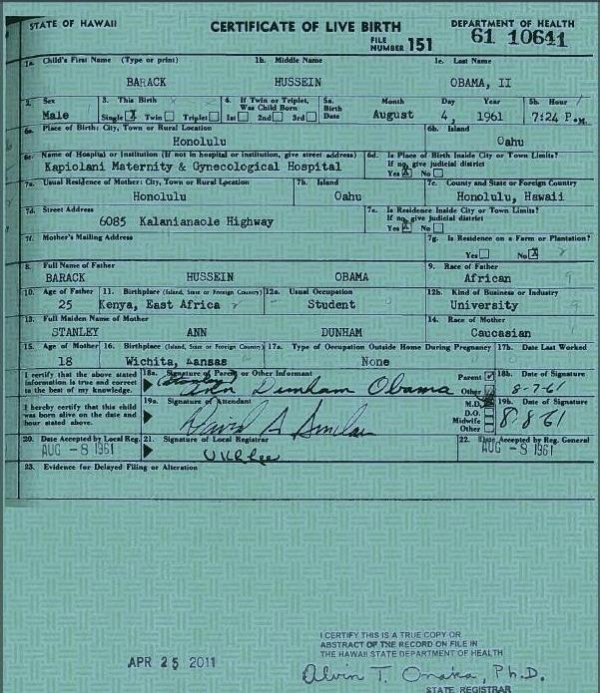 STATE OF HAWAII CERTIFICATE OF LIVE BIRTH DEPARTMENT OF HEALTH
FILE NUMBER 151 61 10641
1a. Child's First Name (Type or print) 1b. Middle Name 1c. Last Name
BARACK HUSSEIN OBAMA, II
2. Sex 3. This Birth 4. If Twin or Triplet, Was Child Born 5a. Birth Date Month Day Year 5b. Hour
Male Single X Twin Triplet 1st 2nd 3rd August 4, 1961 7:24 P.M.
6a. Place of Birth: City, Town or Rural Location 6b. Island
Honolulu Oahu
6c. Name of Hospital or Institution (If not in hospital or institution, give street address) 6d. Is Place of Birth Inside City or Town Limits? If no, give judicial district
Kapiolani Maternity & Gynecological Hospital Yes X No
7a. Usual Residence of Mother: City, Town or Rural Location 7b. Island 7c. County and State or Foreign Country
Honolulu Oahu Honolulu, Hawaii
7d. Street Address 7e. Is Residence Inside City or Town Limits? If no, give judicial district
6085 Kalanianaole Highway Yes X No
7f. Mother's Mailing Address 7g. Is Residence on a Farm or Plantation?
Yes No X
8. Full Name of Father 9. Race of Father
BARACK HUSSEIN OBAMA African
10. Age of Father 11. Birthplace (Island, State or Foreign Country) 12a. Usual Occupation 12b. Kind of Business or Industry
25 Kenya, East Africa Student University
13. Full Maiden Name of Mother 14. Race of Mother
STANLEY ANN DUNHAM Caucasian
15. Age of Mother 16. Birthplace (Island, State or Foreign Country) 17a. Type of Occupation Outside Home During Pregnancy 17b. Date Last Worked
18 Wichita, Kansas None
I certify that the above stated information is true and correct to the best of my knowledge. 18a. Signature of Parent or Other Informant Parent Other 18b. Date of Signature
(Stanley) Ann Dunham Obama 8-7-61
I hereby certify that this child was born alive on the date and hour stated above. 19a. Signature of Attendant M.D. D.O. Midwife Other 19b. Date of Signature
David A Sinclair 8-8-61
20. Date Accepted by Local Reg. 21. Signature of Local Registrar 22. Date Accepted by Reg. General
AUG -8 1961 U K L Lee AUG -8 1961
23. Evidence for Delayed Filing or Alteration
APR 25 2011
I CERTIFY THIS IS A TRUE COPY OR
ABSTRACT OF THE RECORD ON FILE IN
THE HAWAII STATE DEPARTMENT OF HEALTH
Alvin T. Onaka, Ph.D.
STATE REGISTRAR